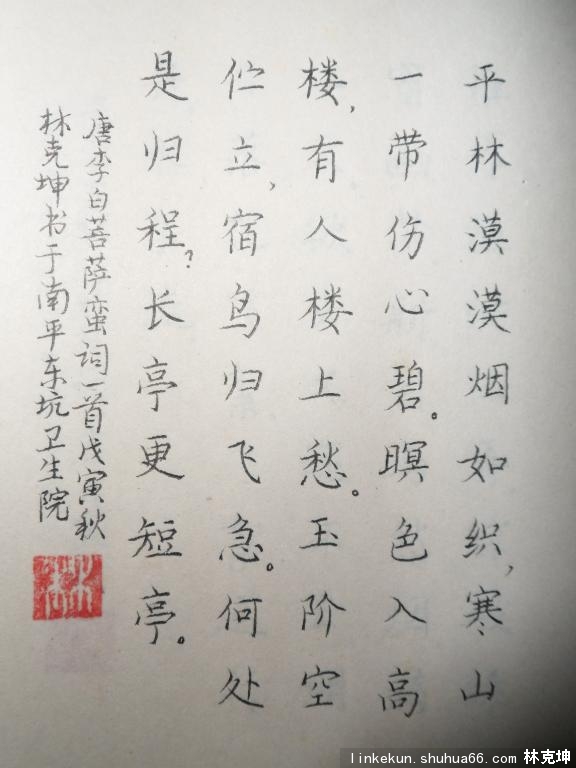 平林漠漠烟如织，寒山
一带伤心碧。暝色入高
楼，有人楼上愁。玉阶空
伫立，宿鸟归飞急。何处
是归程？长亭更短亭。
唐李白菩萨蛮词一首戊寅秋
林克坤书于南平东坑卫生院
linkekun.shuhua66.com 林克坤